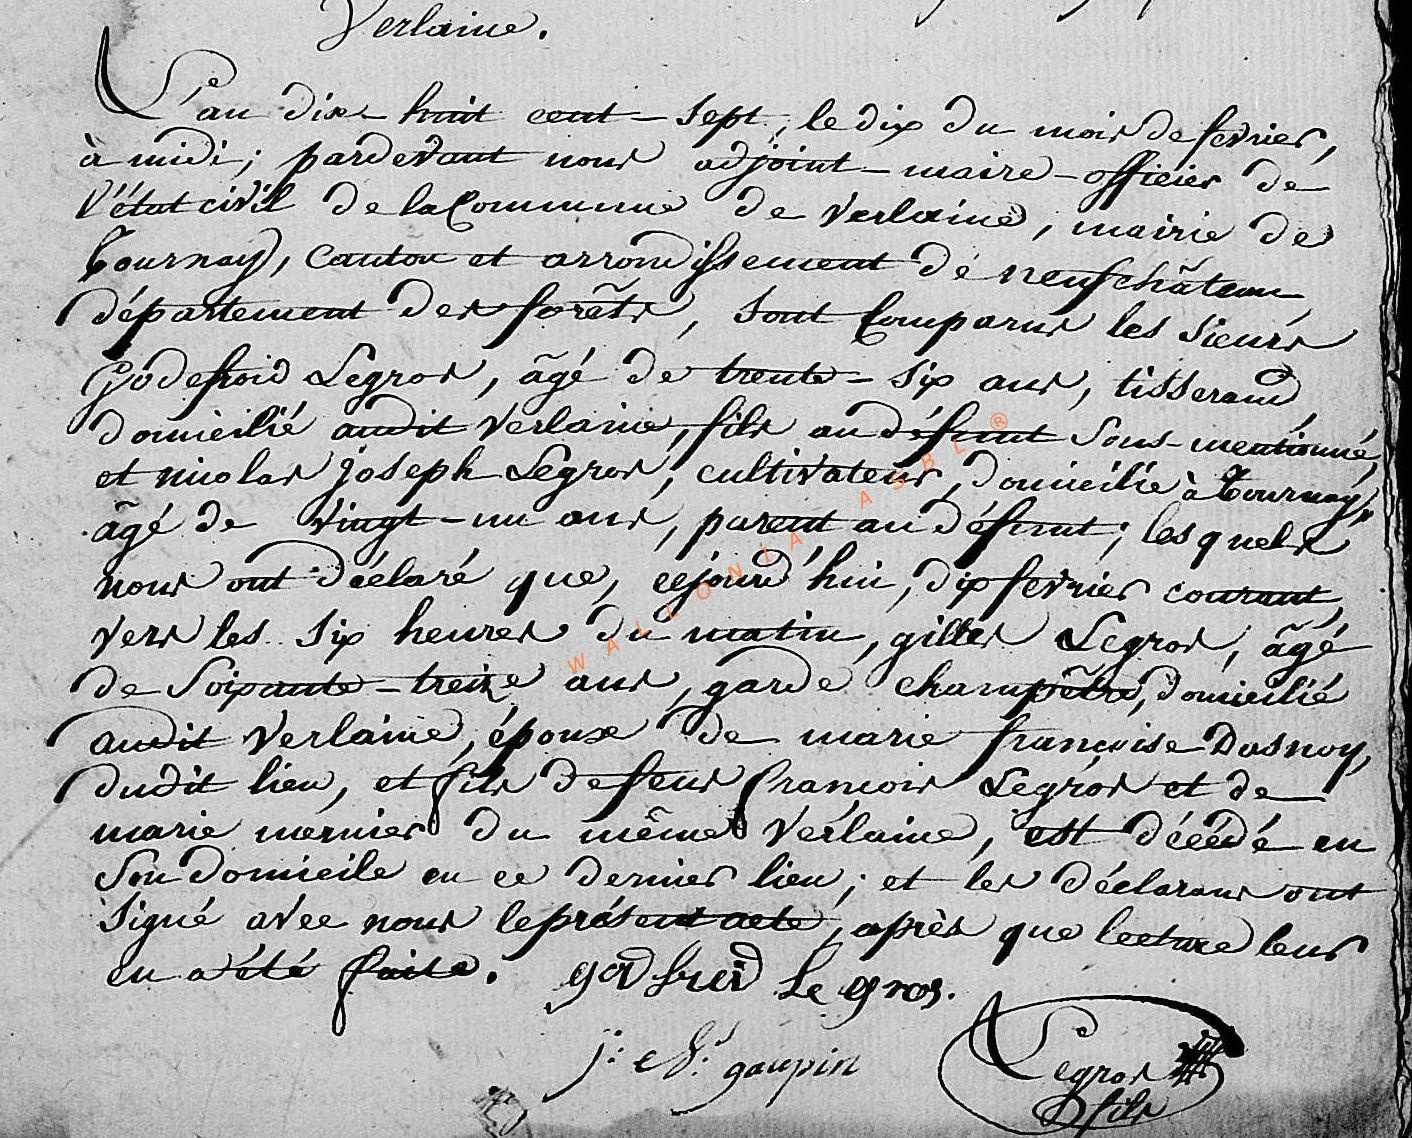 Verlaine.
L'an dix-huit cent-sept, le dix du mois de fevrier,
à midi; pardevant nous adjoint-maire-officier de
l'état civil de la Commune de verlaine, mairie de
Tournay, canton et arrondissement de neufchâteau
département des forêts, sont Comparus les sieurs
Godefroid Legros, âgé de trente-six ans, tisserand,
domicilié audit verlaine, fils au défunt sous-mentionné,
et nicolas joseph Legros, cultivateur, domicilié à Tournay,
âgé de vingt-un ans, parent au défunt; lesquels
nous ont déclaré que, cejourd'hui, dix fevrier courant,
vers les six heures du matin, gilles Legros, âgé
de soixante-treize ans, garde champêtre, domicilié
audit verlaine, époux de marie françoise Dasnoy,
dudit lieu, et fils de feus françois Legros et de
marie mernier du même verlaine, est décédé en
son domicile en ce dernier lieu; et les déclarans ont
signé avec nous le présent acte, après que lecture leur
en a été faite. godfrid Le gros.
j: gaupin
Legros
fils
WALLONIA ASBL ®